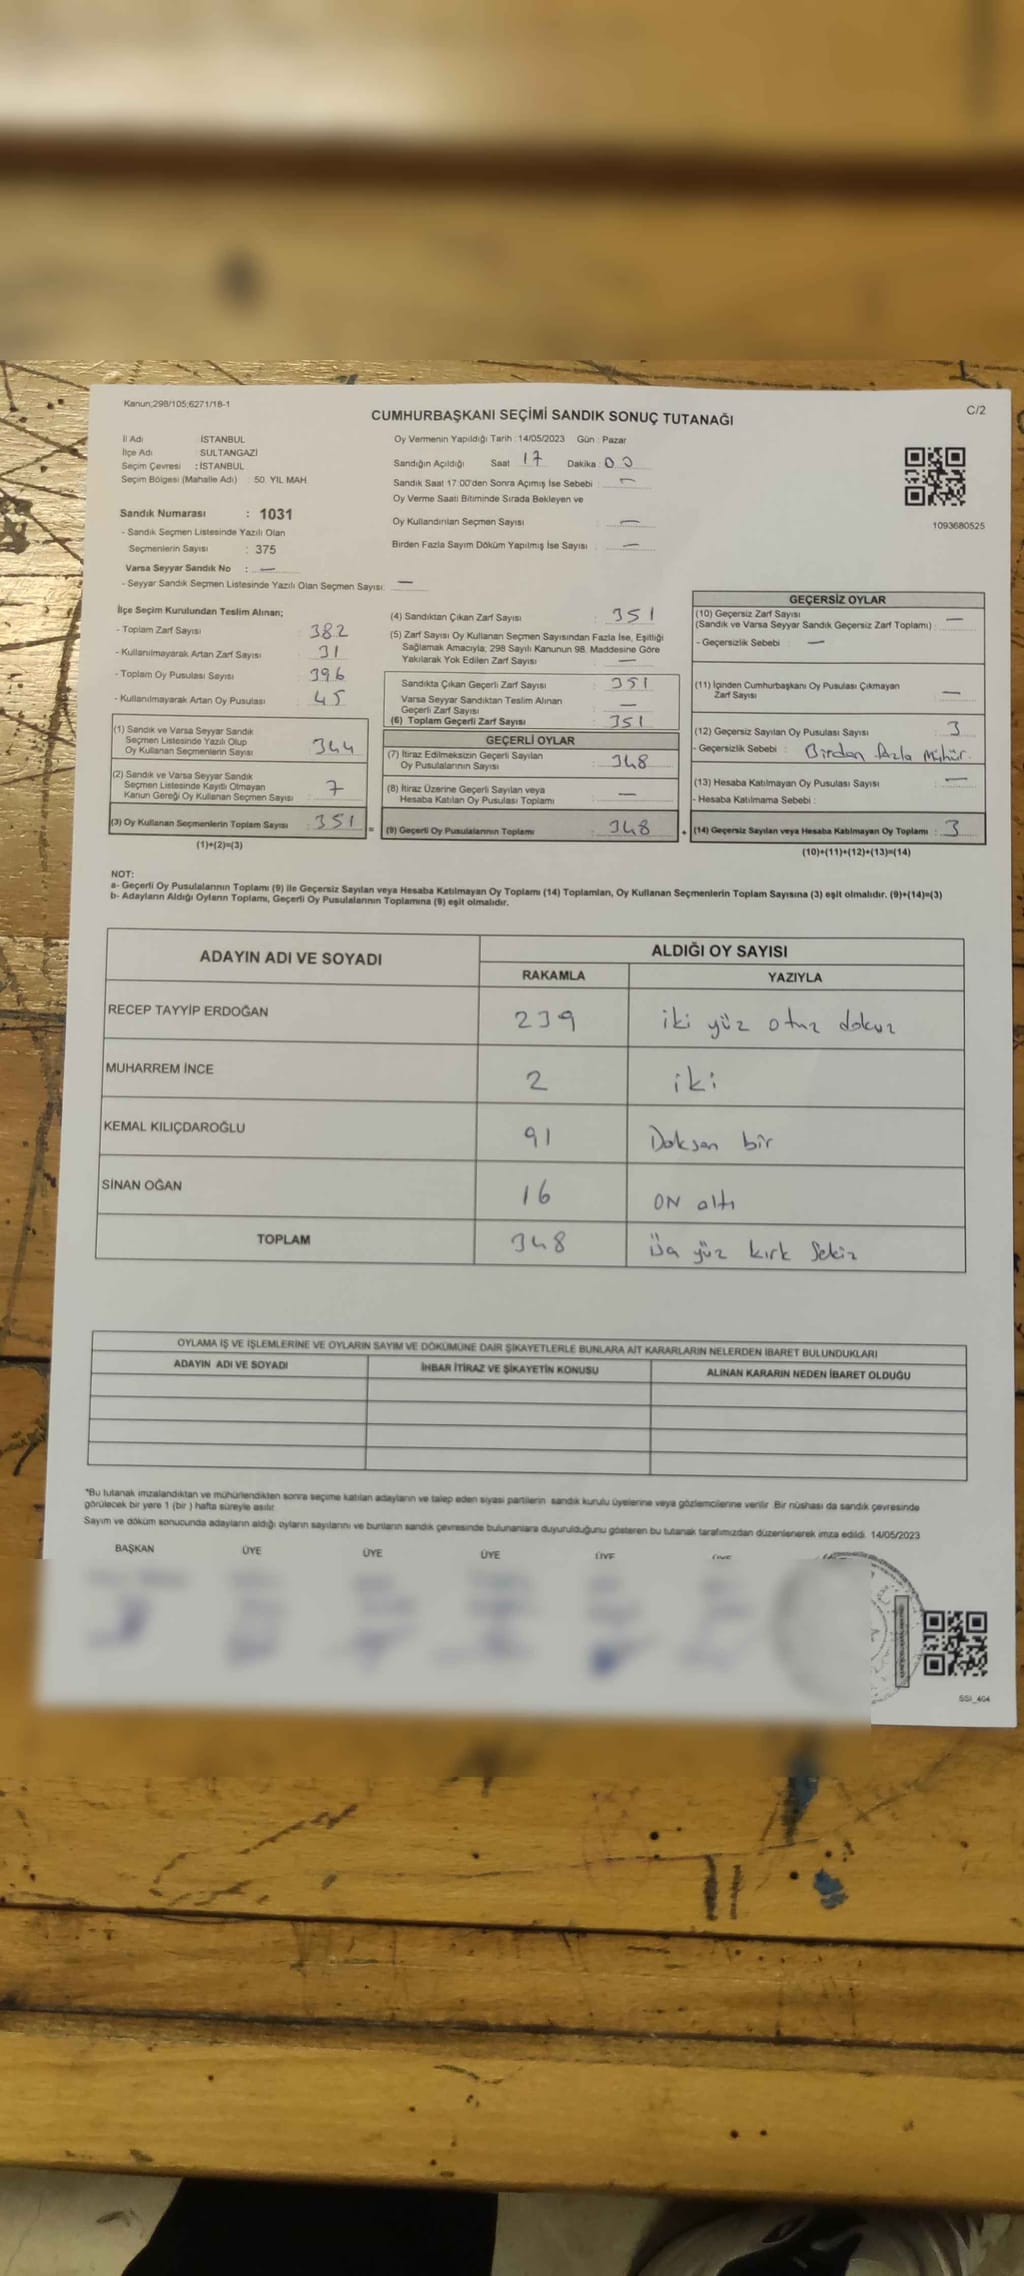 Kanun;298/105;6271/18-1
C/2
CUMHURBAŞKANI SEÇİMİ SANDIK SONUÇ TUTANAĞI
İl Adı : İSTANBUL
İlçe Adı : SULTANGAZİ
Seçim Çevresi : İSTANBUL
Seçim Bölgesi (Mahalle Adı) : 50. YIL MAH
Sandık Numarası : 1031
- Sandık Seçmen Listesinde Yazılı Olan
Seçmenlerin Sayısı : 375
Varsa Seyyar Sandık No : —
- Seyyar Sandık Seçmen Listesinde Yazılı Olan Seçmen Sayısı: —
Oy Vermenin Yapıldığı Tarih : 14/05/2023 Gün : Pazar
Sandığın Açıldığı Saat 17 Dakika : 00
Sandık Saat 17:00'den Sonra Açımış İse Sebebi : —
Oy Verme Saati Bitiminde Sırada Bekleyen ve
Oy Kullandırılan Seçmen Sayısı : —
Birden Fazla Sayım Döküm Yapılmış İse Sayısı : —
1093680525
İlçe Seçim Kurulundan Teslim Alınan;
- Toplam Zarf Sayısı : 382
- Kullanılmayarak Artan Zarf Sayısı : 31
- Toplam Oy Pusulası Sayısı : 396
- Kullanılmayarak Artan Oy Pusulası : 45
(1) Sandık ve Varsa Seyyar Sandık
Seçmen Listesinde Yazılı Olup
Oy Kullanan Seçmenlerin Sayısı : 344
(2) Sandık ve Varsa Seyyar Sandık
Seçmen Listesinde Kayıtlı Olmayan
Kanun Gereği Oy Kullanan Seçmen Sayısı : 7
(3) Oy Kullanan Seçmenlerin Toplam Sayısı : 351 =
(1)+(2)=(3)
(4) Sandıktan Çıkan Zarf Sayısı : 351
(5) Zarf Sayısı Oy Kullanan Seçmen Sayısından Fazla İse, Eşitliği
Sağlamak Amacıyla; 298 Sayılı Kanunun 98. Maddesine Göre
Yakılarak Yok Edilen Zarf Sayısı : —
Sandıkta Çıkan Geçerli Zarf Sayısı : 351
Varsa Seyyar Sandıktan Teslim Alınan
Geçerli Zarf Sayısı : —
(6) Toplam Geçerli Zarf Sayısı : 351
GEÇERLİ OYLAR
(7) İtiraz Edilmeksizin Geçerli Sayılan
Oy Pusulalarının Sayısı : 348
(8) İtiraz Üzerine Geçerli Sayılan veya
Hesaba Katılan Oy Pusulası Toplamı : —
(9) Geçerli Oy Pusulalarının Toplamı : 348 +
GEÇERSİZ OYLAR
(10) Geçersiz Zarf Sayısı
(Sandık ve Varsa Seyyar Sandık Geçersiz Zarf Toplamı) : —
- Geçersizlik Sebebi : —
(11) İçinden Cumhurbaşkanı Oy Pusulası Çıkmayan
Zarf Sayısı : —
(12) Geçersiz Sayılan Oy Pusulası Sayısı : 3
- Geçersizlik Sebebi : Birden fazla Mühür.
(13) Hesaba Katılmayan Oy Pusulası Sayısı : —
- Hesaba Katılmama Sebebi :
(14) Geçersiz Sayılan veya Hesaba Katılmayan Oy Toplamı : 3
(10)+(11)+(12)+(13)=(14)
NOT:
a- Geçerli Oy Pusulalarının Toplamı (9) ile Geçersiz Sayılan veya Hesaba Katılmayan Oy Toplamı (14) Toplamları, Oy Kullanan Seçmenlerin Toplam Sayısına (3) eşit olmalıdır. (9)+(14)=(3)
b- Adayların Aldığı Oyların Toplamı, Geçerli Oy Pusulalarının Toplamına (9) eşit olmalıdır.
ADAYIN ADI VE SOYADI ALDIĞI OY SAYISI
RAKAMLA YAZIYLA
RECEP TAYYİP ERDOĞAN 239 iki yüz otuz dokuz
MUHARREM İNCE 2 iki
KEMAL KILIÇDAROĞLU 91 Doksan bir
SİNAN OĞAN 16 ON altı
TOPLAM 348 Üç yüz kırk Sekiz
OYLAMA İŞ VE İŞLEMLERİNE VE OYLARIN SAYIM VE DÖKÜMÜNE DAİR ŞİKAYETLERLE BUNLARA AİT KARARLARIN NELERDEN İBARET BULUNDUKLARI
ADAYIN ADI VE SOYADI İHBAR İTİRAZ VE ŞİKAYETİN KONUSU ALINAN KARARIN NEDEN İBARET OLDUĞU
*Bu tutanak imzalandıktan ve mühürlendikten sonra seçime katılan adayların ve talep eden siyasi partilerin sandık kurulu üyelerine veya gözlemcilerine verilir. Bir nüshası da sandık çevresinde
görülecek bir yere 1 (bir ) hafta süreyle asılır.
Sayım ve döküm sonucunda adayların aldığı oyların sayılarını ve bunların sandık çevresinde bulunanlara duyurulduğunu gösteren bu tutanak tarafımızdan düzenlenerek imza edildi. 14/05/2023
BAŞKAN ÜYE ÜYE ÜYE ÜYE ÜYE
SSI_404